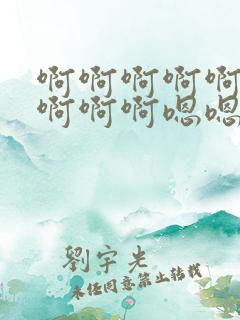 啊啊啊啊啊
啊啊啊嗯嗯
劉宇光
未经同意禁止转载